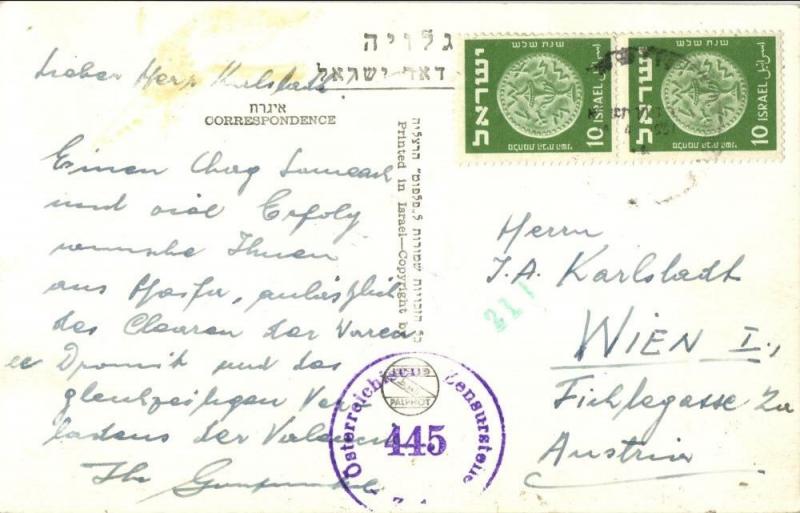 גלויה
דאר-ישראל
Lieber Herr Karlstadt
איגרת
CORRESPONDENCE
Einen Chag Sameach
und viel Erfolg
wünsche Ihnen
aus Haifa, anlässlich
des Clearen der Waren
und des
gleichzeitigen Ver-
ladens der
Ihr
כל הזכויות שמורות ל"פלפוט" הרצליה
Printed in Israel—Copyright by
PALPHOT
Österreichische Zensurstelle
445
211
ישראל
שנת שלש
10 ISRAEL
ישראל
שנת שלש
10 ISRAEL
Herrn
J.A. Karlstadt
WIEN I.,
Fichtegasse 2a
Austria